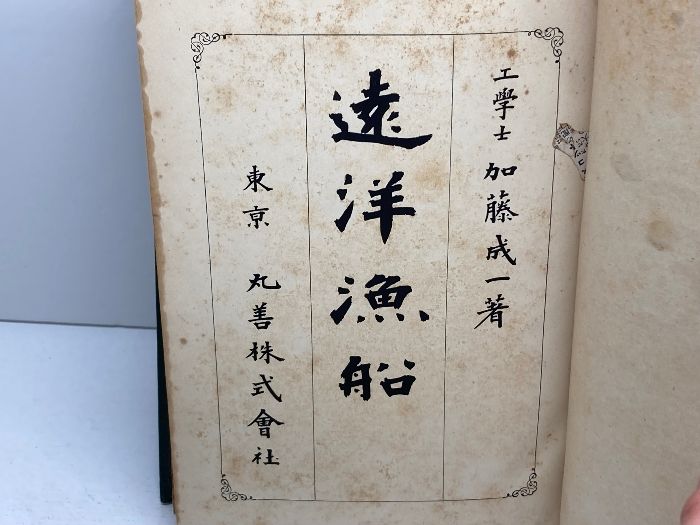 工學士 加藤成一著
遠洋漁船
東京 丸善株式會社